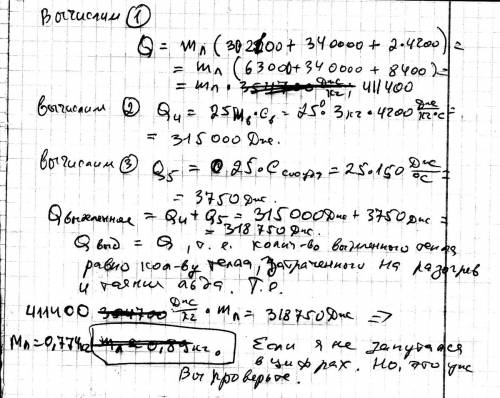 Вычислим ①
Q = mл (30·2100 + 340000 + 2·4200) =
= mл (63000 + 340000 + 8400) =
= mл · 411400
Вычислим ② Q4 = 25 mв · Cв = 25° · 3 кг · 4200 Дж/кг·°C =
= 315000 Дж.
Вычислим ③ Q5 = 25·C = 25·150 Дж/°C =
= 3750 Дж.
Qвыделенное = Q4 + Q5 = 315000 Дж + 3750 Дж =
= 318750 Дж.
Qвыд = Q, т.е. колич-во выделенного тепла
равно кол-ву тепла, затраченного на разогрев
и таяния льда. Т.О.
411400 Дж/кг · mл = 318750 Дж =>
Mл = 0,774 кг. Если я не запутался
в цифрах. Но, это уже
Вы проверьте.